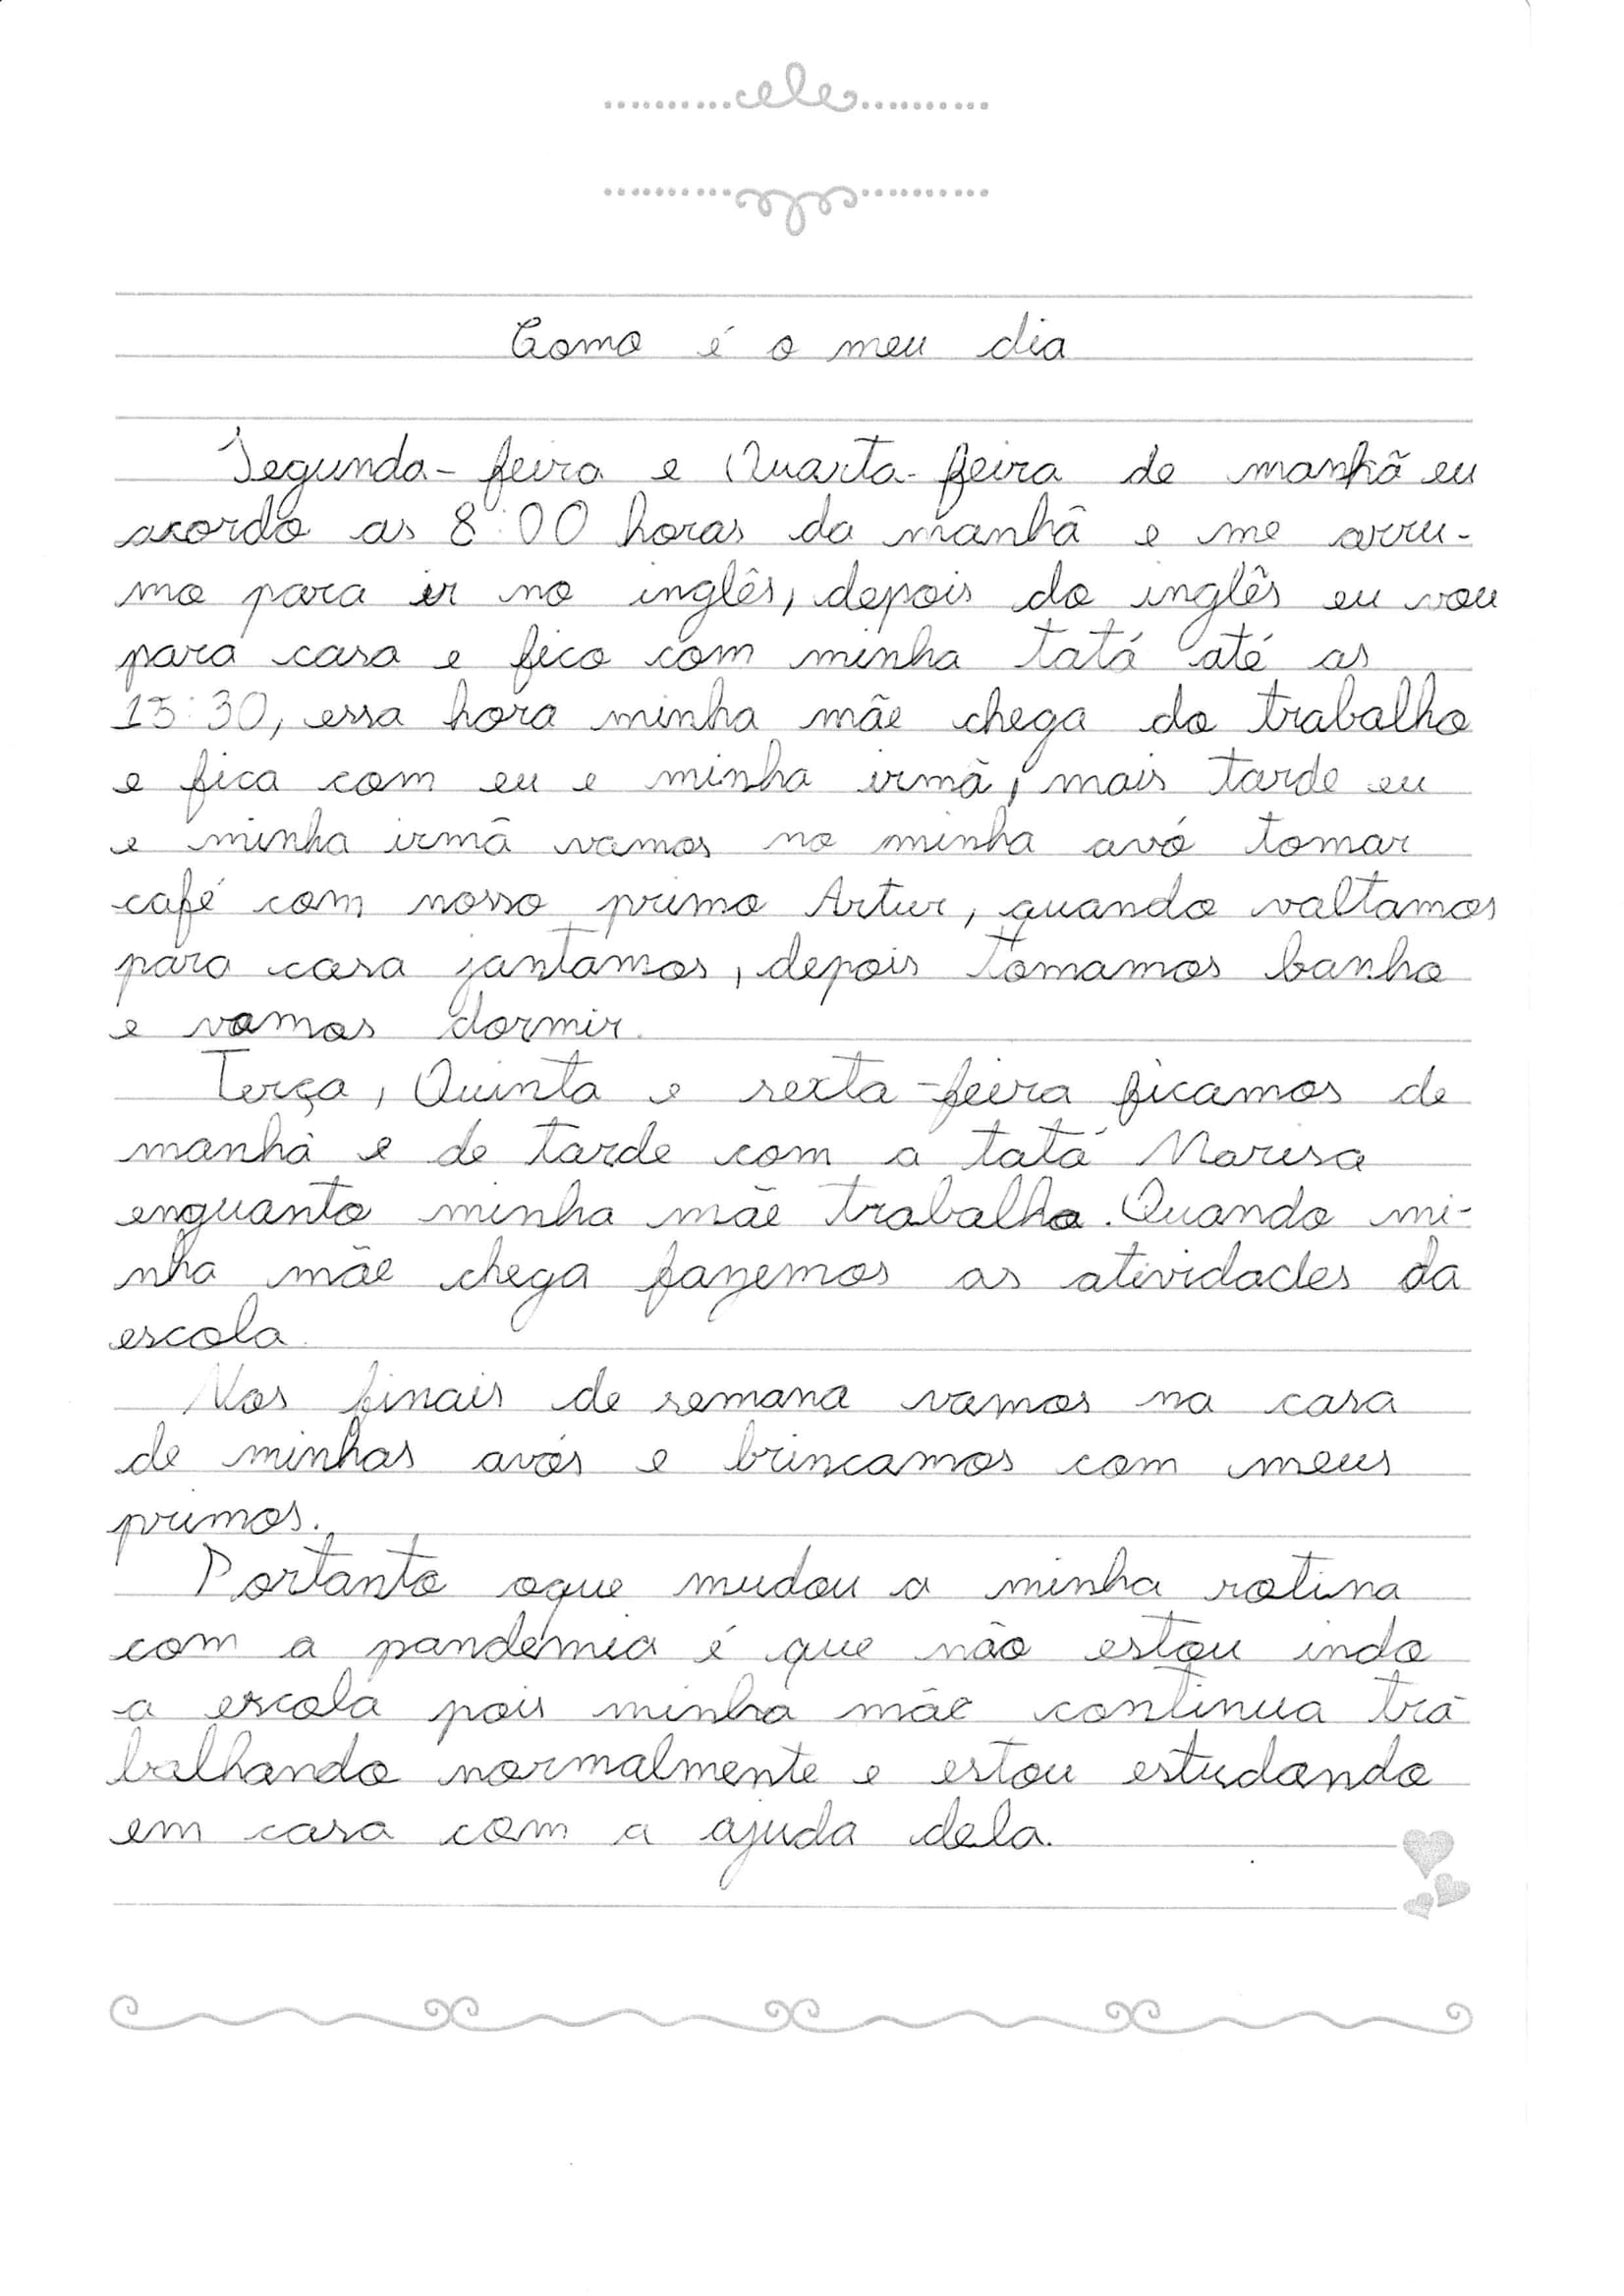 Como é o meu dia
Segunda-feira e Quarta-feira de manhã eu
acordo as 8:00 horas da manhã e me arru-
mo para ir no inglês, depois do inglês eu vou
para casa e fico com minha tatá até as
13:30, essa hora minha mãe chega do trabalho
e fica com eu e minha irmã, mais tarde eu
e minha irmã vamos na minha avó tomar
café com nosso primo Artur, quando voltamos
para casa jantamos, depois tomamos banho
e vamos dormir.
Terça, Quinta e sexta-feira ficamos de
manhã e de tarde com a tatá Marisa
enquanto minha mãe trabalha. Quando mi-
nha mãe chega fazemos as atividades da
escola.
Nos finais de semana vamos na casa
de minhas avós e brincamos com meus
primos.
Portanto oque mudou a minha rotina
com a pandemia é que não estou indo
a escola pois minha mãe continua tra
balhando normalmente e estou estudando
em casa com a ajuda dela.